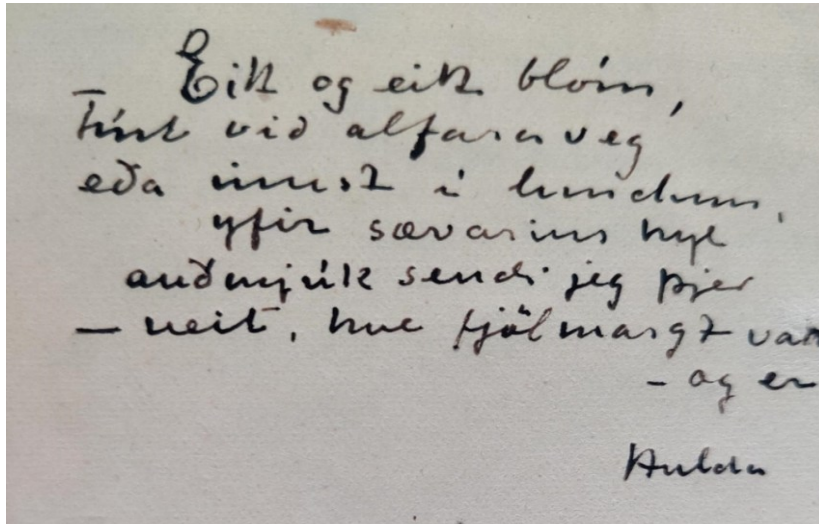 Eitt og eitt blóm,
tínt við alfaraveg
eða innst í lundum,
yfir sævarins hyl
auðmjúk sendi jeg þjer
– veit, hve fjölmargt var
– og er
Hulda